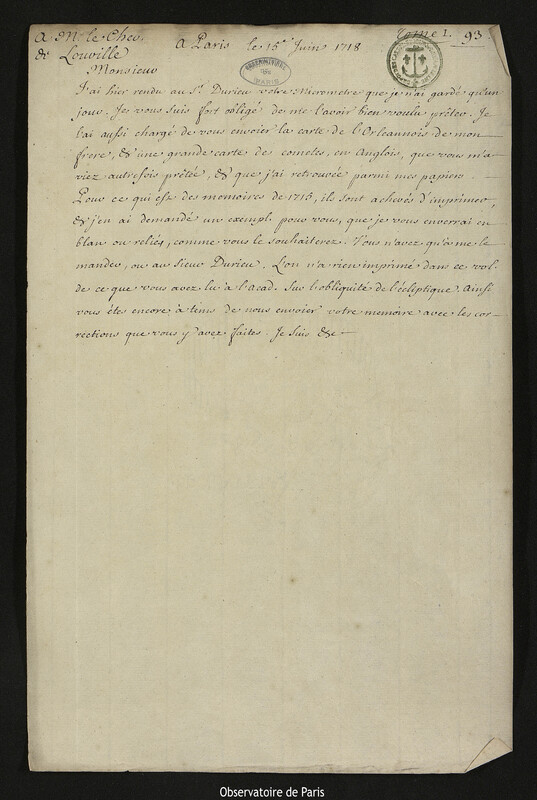 A Mr. le Chev. de Louville
A Paris le 15e Juin 1718
Tome I. 93
Monsieur
J'ai hier rendu au Sr. Durieu votre Micrometre que je n'ai gardé qu'un
jour. Je vous suis fort obligé de me l'avoir bien voulu prêter. Je
l'ai aussi chargé de vous envoier la carte de l'Orleannois de mon
frere, & d'une grande carte de cometes, en Anglois, que vous m'a-
viez autrefois prêtée, & que j'ai retrouvée parmi mes papiers.
Pour ce qui est des memoires de 1715, ils sont achevés d'imprimer,
& j'en ai demandé un exempl. pour vous, que je vous enverrai en
blan ou reliés, comme vous le souhaiterez. Vous n'avez qu'à me le
mander, ou au Sieur Durieu. L'on n'a rien imprimé dans ce vol.
de ce que vous avez lu à l'Acad. sur l'obliquité de l'écliptique. Ainsi
vous êtes encore à tems de nous envoier votre memoire avec les cor-
rections que vous y avez faites. Je suis &c
OBSERVATOIRE DE PARIS
Observatoire de Paris